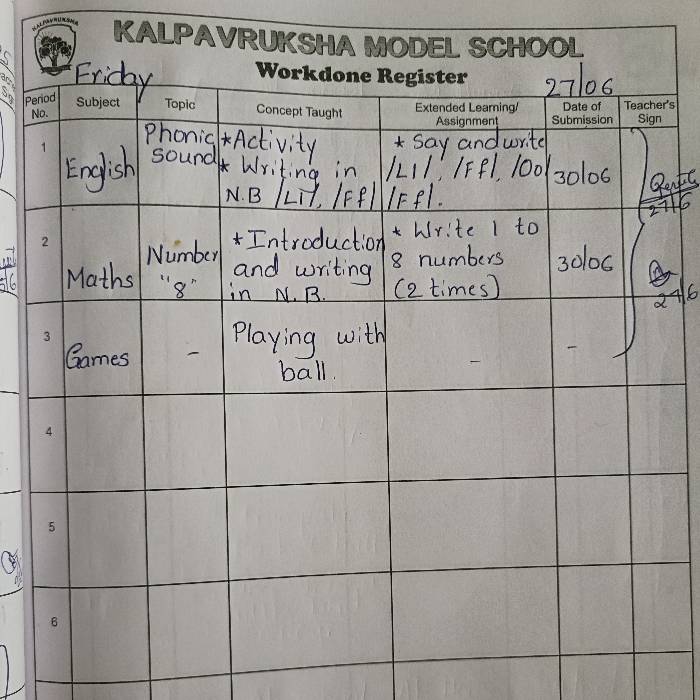 KALPAVRUKSHA
KALPAVRUKSHA MODEL SCHOOL
Workdone Register
Friday
27/06
Period No.
Subject
Topic
Concept Taught
Extended Learning/
Assignment
Date of
Submission
Teacher's
Sign
1
English
Phonic
sound
* Activity
* Writing in
N.B /Ll/, /Ff/
* Say and write
/Ll/, /Ff/, /Oo/
/Ff/.
30/06
27/6
2
Maths
Number
"8"
* Introduction
and writing
in N.B.
* Write 1 to
8 numbers
(2 times)
30/06
3
Games
-
Playing with
ball.
-
-
4
5
6